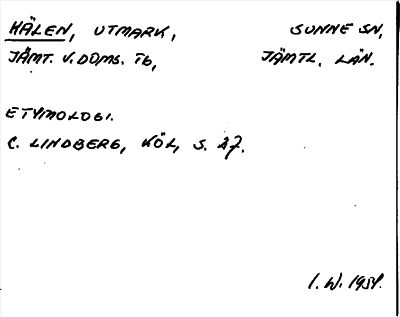 KÄLEN, UTMARK, SUNNE SN,
JÄMT. V. DOMS. TB, JÄMTL. LÄN.
ETYMOLOGI.
C. LINDBERG, KÖL, S. 27.
I. W. 1954.